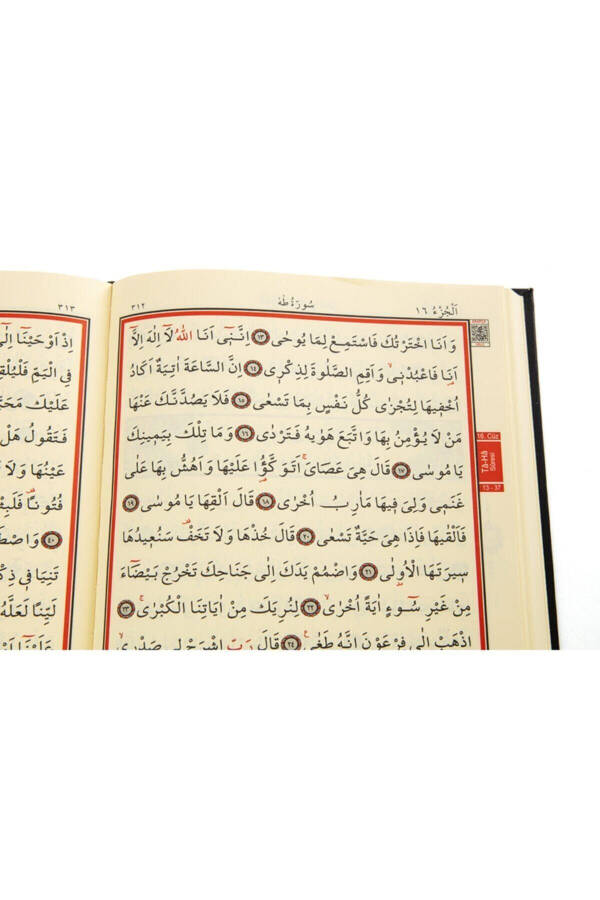 اَلْجُزْءُ ١٦ سُورَةُ طٰهٰ ٣١٢
وَاَنَا اخْتَرْتُكَ فَاسْتَمِعْ لِمَا يُوحٰى ﴿١٣﴾ اِنَّنٓي اَنَا اللّٰهُ لَٓا اِلٰهَ اِلَّٓا
اَنَا فَاعْبُدْنٖي وَاَقِمِ الصَّلٰوةَ لِذِكْرٖي ﴿١٤﴾ اِنَّ السَّاعَةَ اٰتِيَةٌ اَكَادُ
اُخْفٖيهَا لِتُجْزٰى كُلُّ نَفْسٍ بِمَا تَسْعٰى ﴿١٥﴾ فَلَا يَصُدَّنَّكَ عَنْهَا
مَنْ لَا يُؤْمِنُ بِهَا وَاتَّبَعَ هَوٰيهُ فَتَرْدٰى ﴿١٦﴾ وَمَا تِلْكَ بِيَمٖينِكَ
يَا مُوسٰى ﴿١٧﴾ قَالَ هِيَ عَصَايَۚ اَتَوَكَّؤُ۬ا عَلَيْهَا وَاَهُشُّ بِهَا عَلٰى
غَنَمٖي وَلِيَ فٖيهَا مَاٰرِبُ اُخْرٰى ﴿١٨﴾ قَالَ اَلْقِهَا يَا مُوسٰى ﴿١٩﴾
فَاَلْقٰيهَا فَاِذَا هِيَ حَيَّةٌ تَسْعٰى ﴿٢٠﴾ قَالَ خُذْهَا وَلَا تَخَفْ سَنُعٖيدُهَا
سٖيرَتَهَا الْاُو۫لٰى ﴿٢١﴾ وَاضْمُمْ يَدَكَ اِلٰى جَنَاحِكَ تَخْرُجْ بَيْضَٓاءَ
مِنْ غَيْرِ سُٓوءٍ اٰيَةً اُخْرٰىۙ ﴿٢٢﴾ لِنُرِيَكَ مِنْ اٰيَاتِنَا الْكُبْرٰىۚ ﴿٢٣﴾
اِذْهَبْ اِلٰى فِرْعَوْنَ اِنَّهُ طَغٰى ﴿٢٤﴾ قَالَ رَبِّ اشْرَحْ لٖي صَدْرٖيۙ
16. Cüz
Tâ-Hâ
Sûresi
13 - 37
٣١٣
اِذْ اَوْحَيْنَٓا اِلٰٓى
فِي الْيَمِّ فَلْيُلْقِهِ
عَلَيْكَ مَحَبَّةً
فَتَقُولُ هَلْ
عَيْنُهَا وَلَا
فُتُونًا فَلَبِثْتَ
﴿٤٠﴾ وَاصْطَنَعْتُكَ
تَنِيَا فٖي ذِكْرٖي
لَيِّنًا لَعَلَّهُ
عَلَيْنَٓا